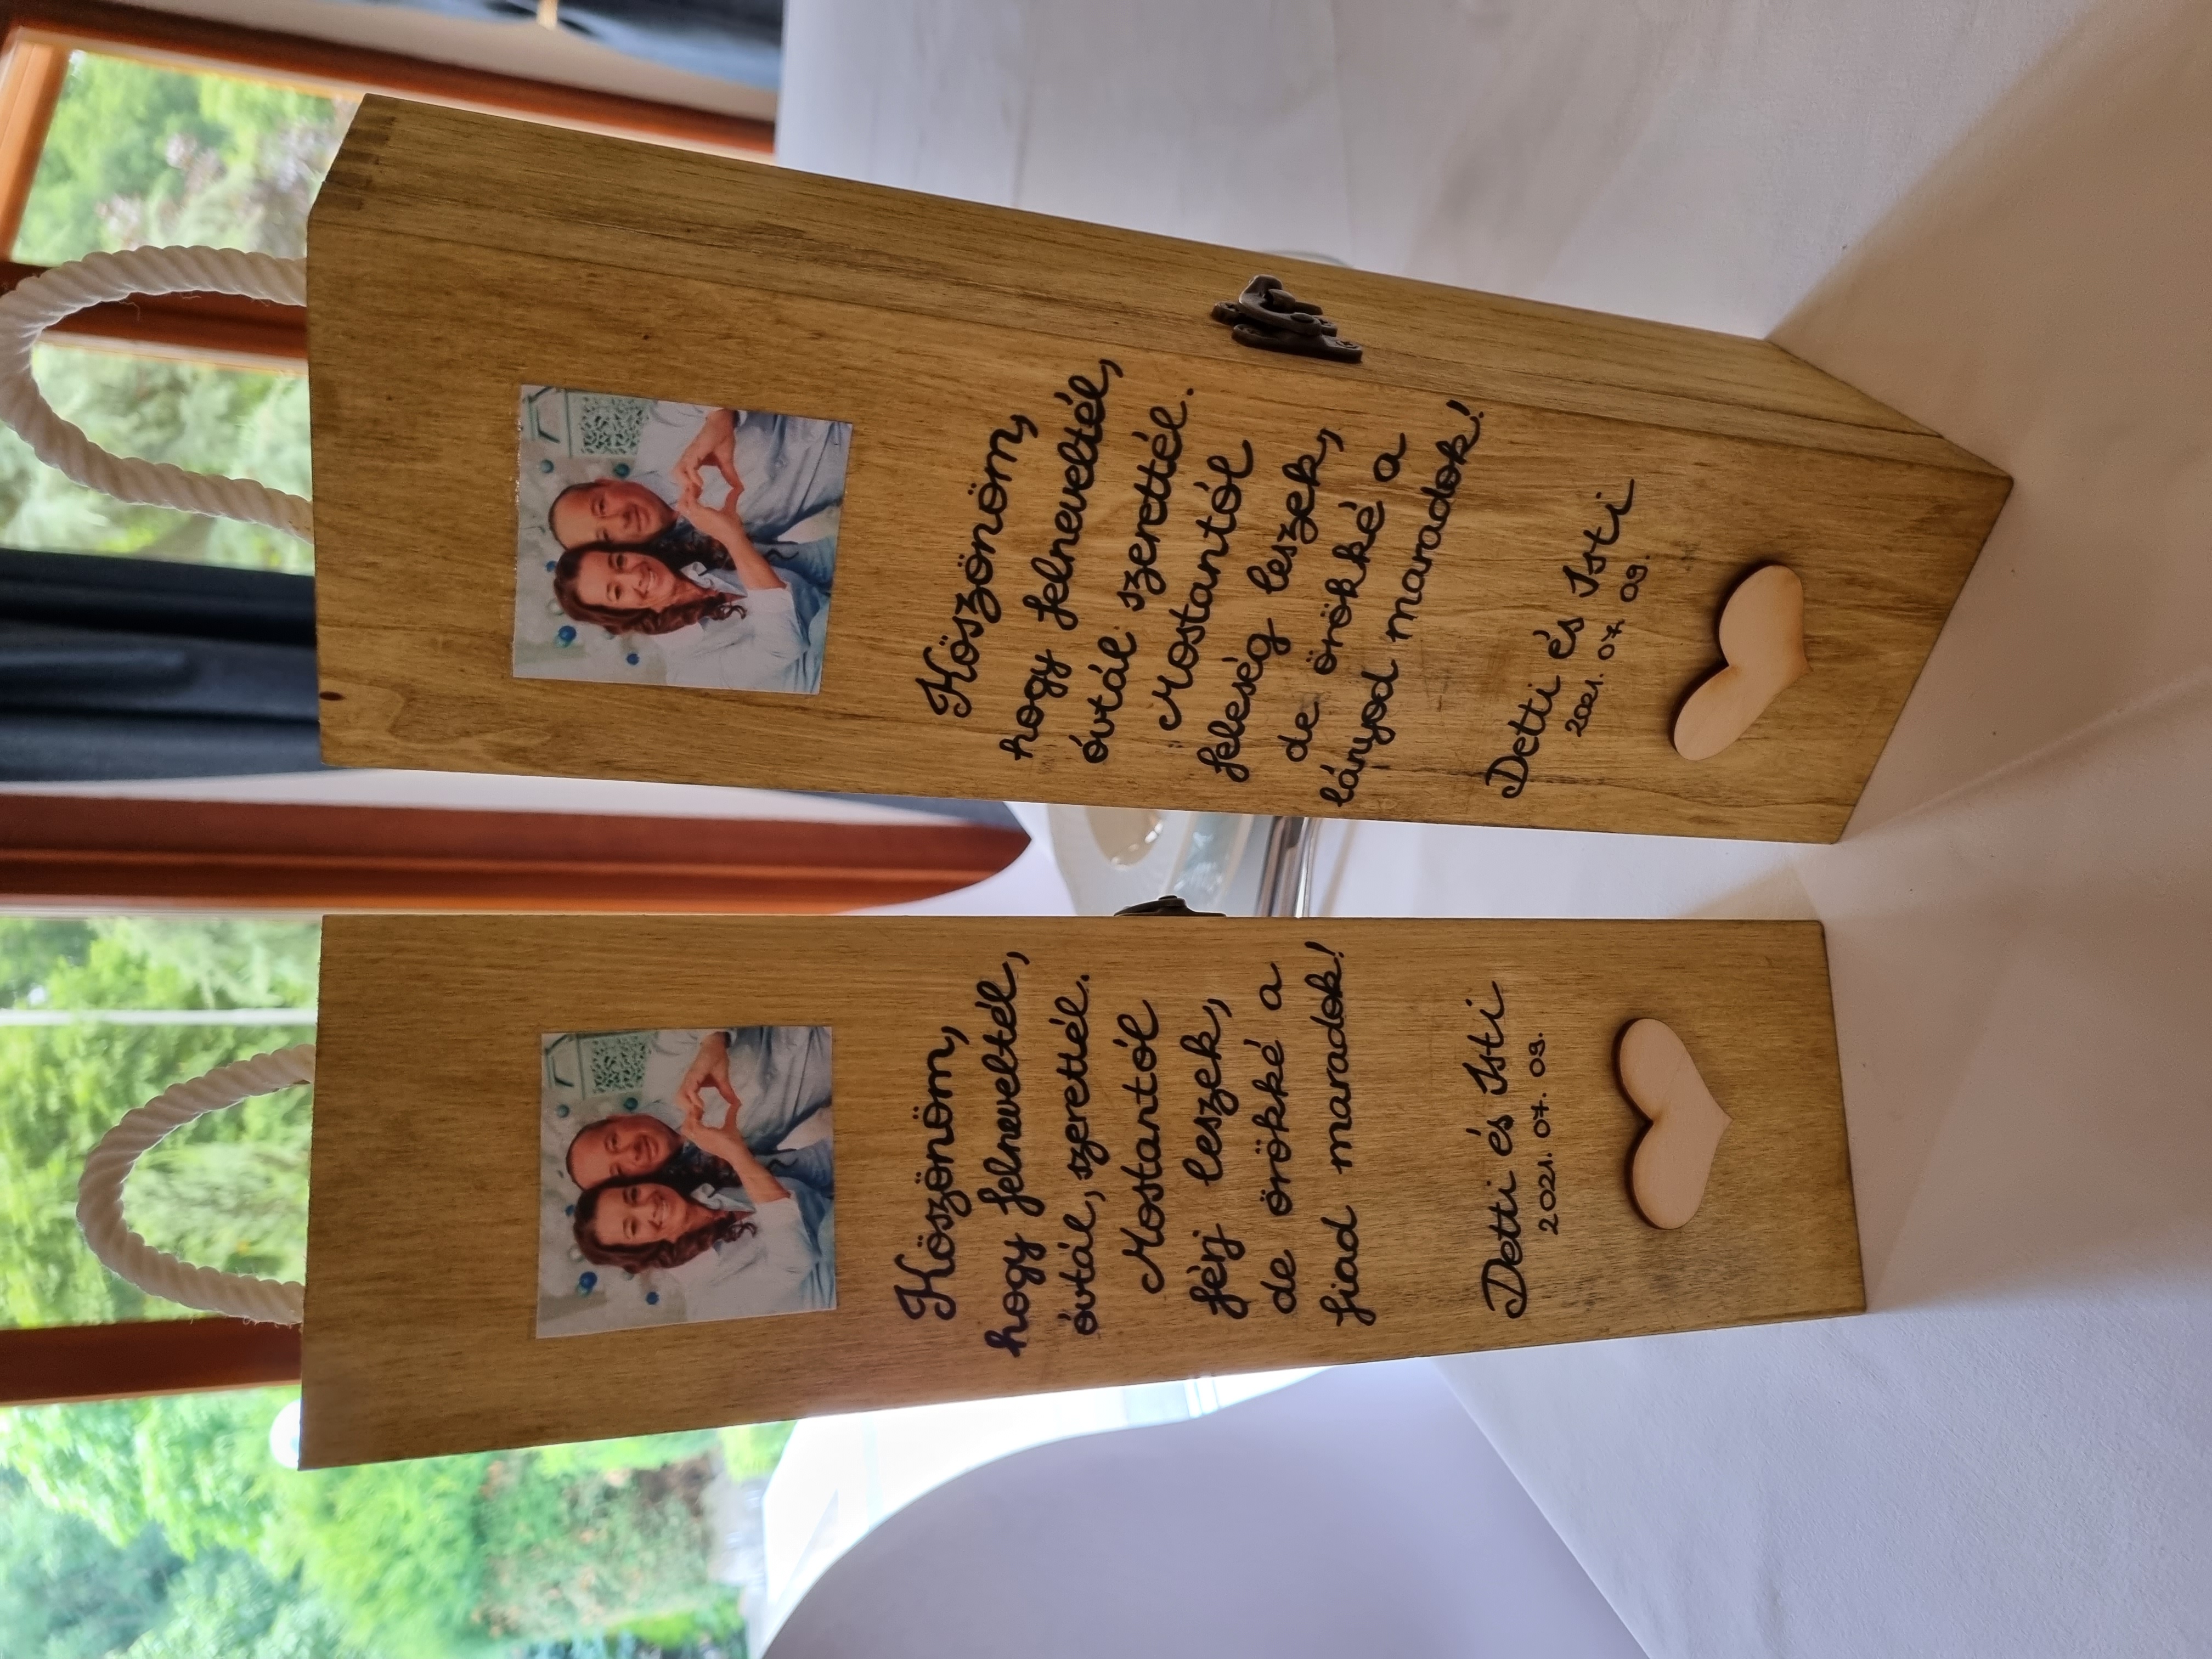 Köszönöm,
hogy felneveltél,
óvtál, szerettél.
Mostantól
férj leszek,
de örökké a
fiad maradok!
Detti és Isti
2021. 07. 09.
Köszönöm,
hogy felneveltél,
óvtál szerettél.
Mostantól
feleség leszek,
de örökké a
lányod maradok!
Detti és Isti
2021. 07. 09.